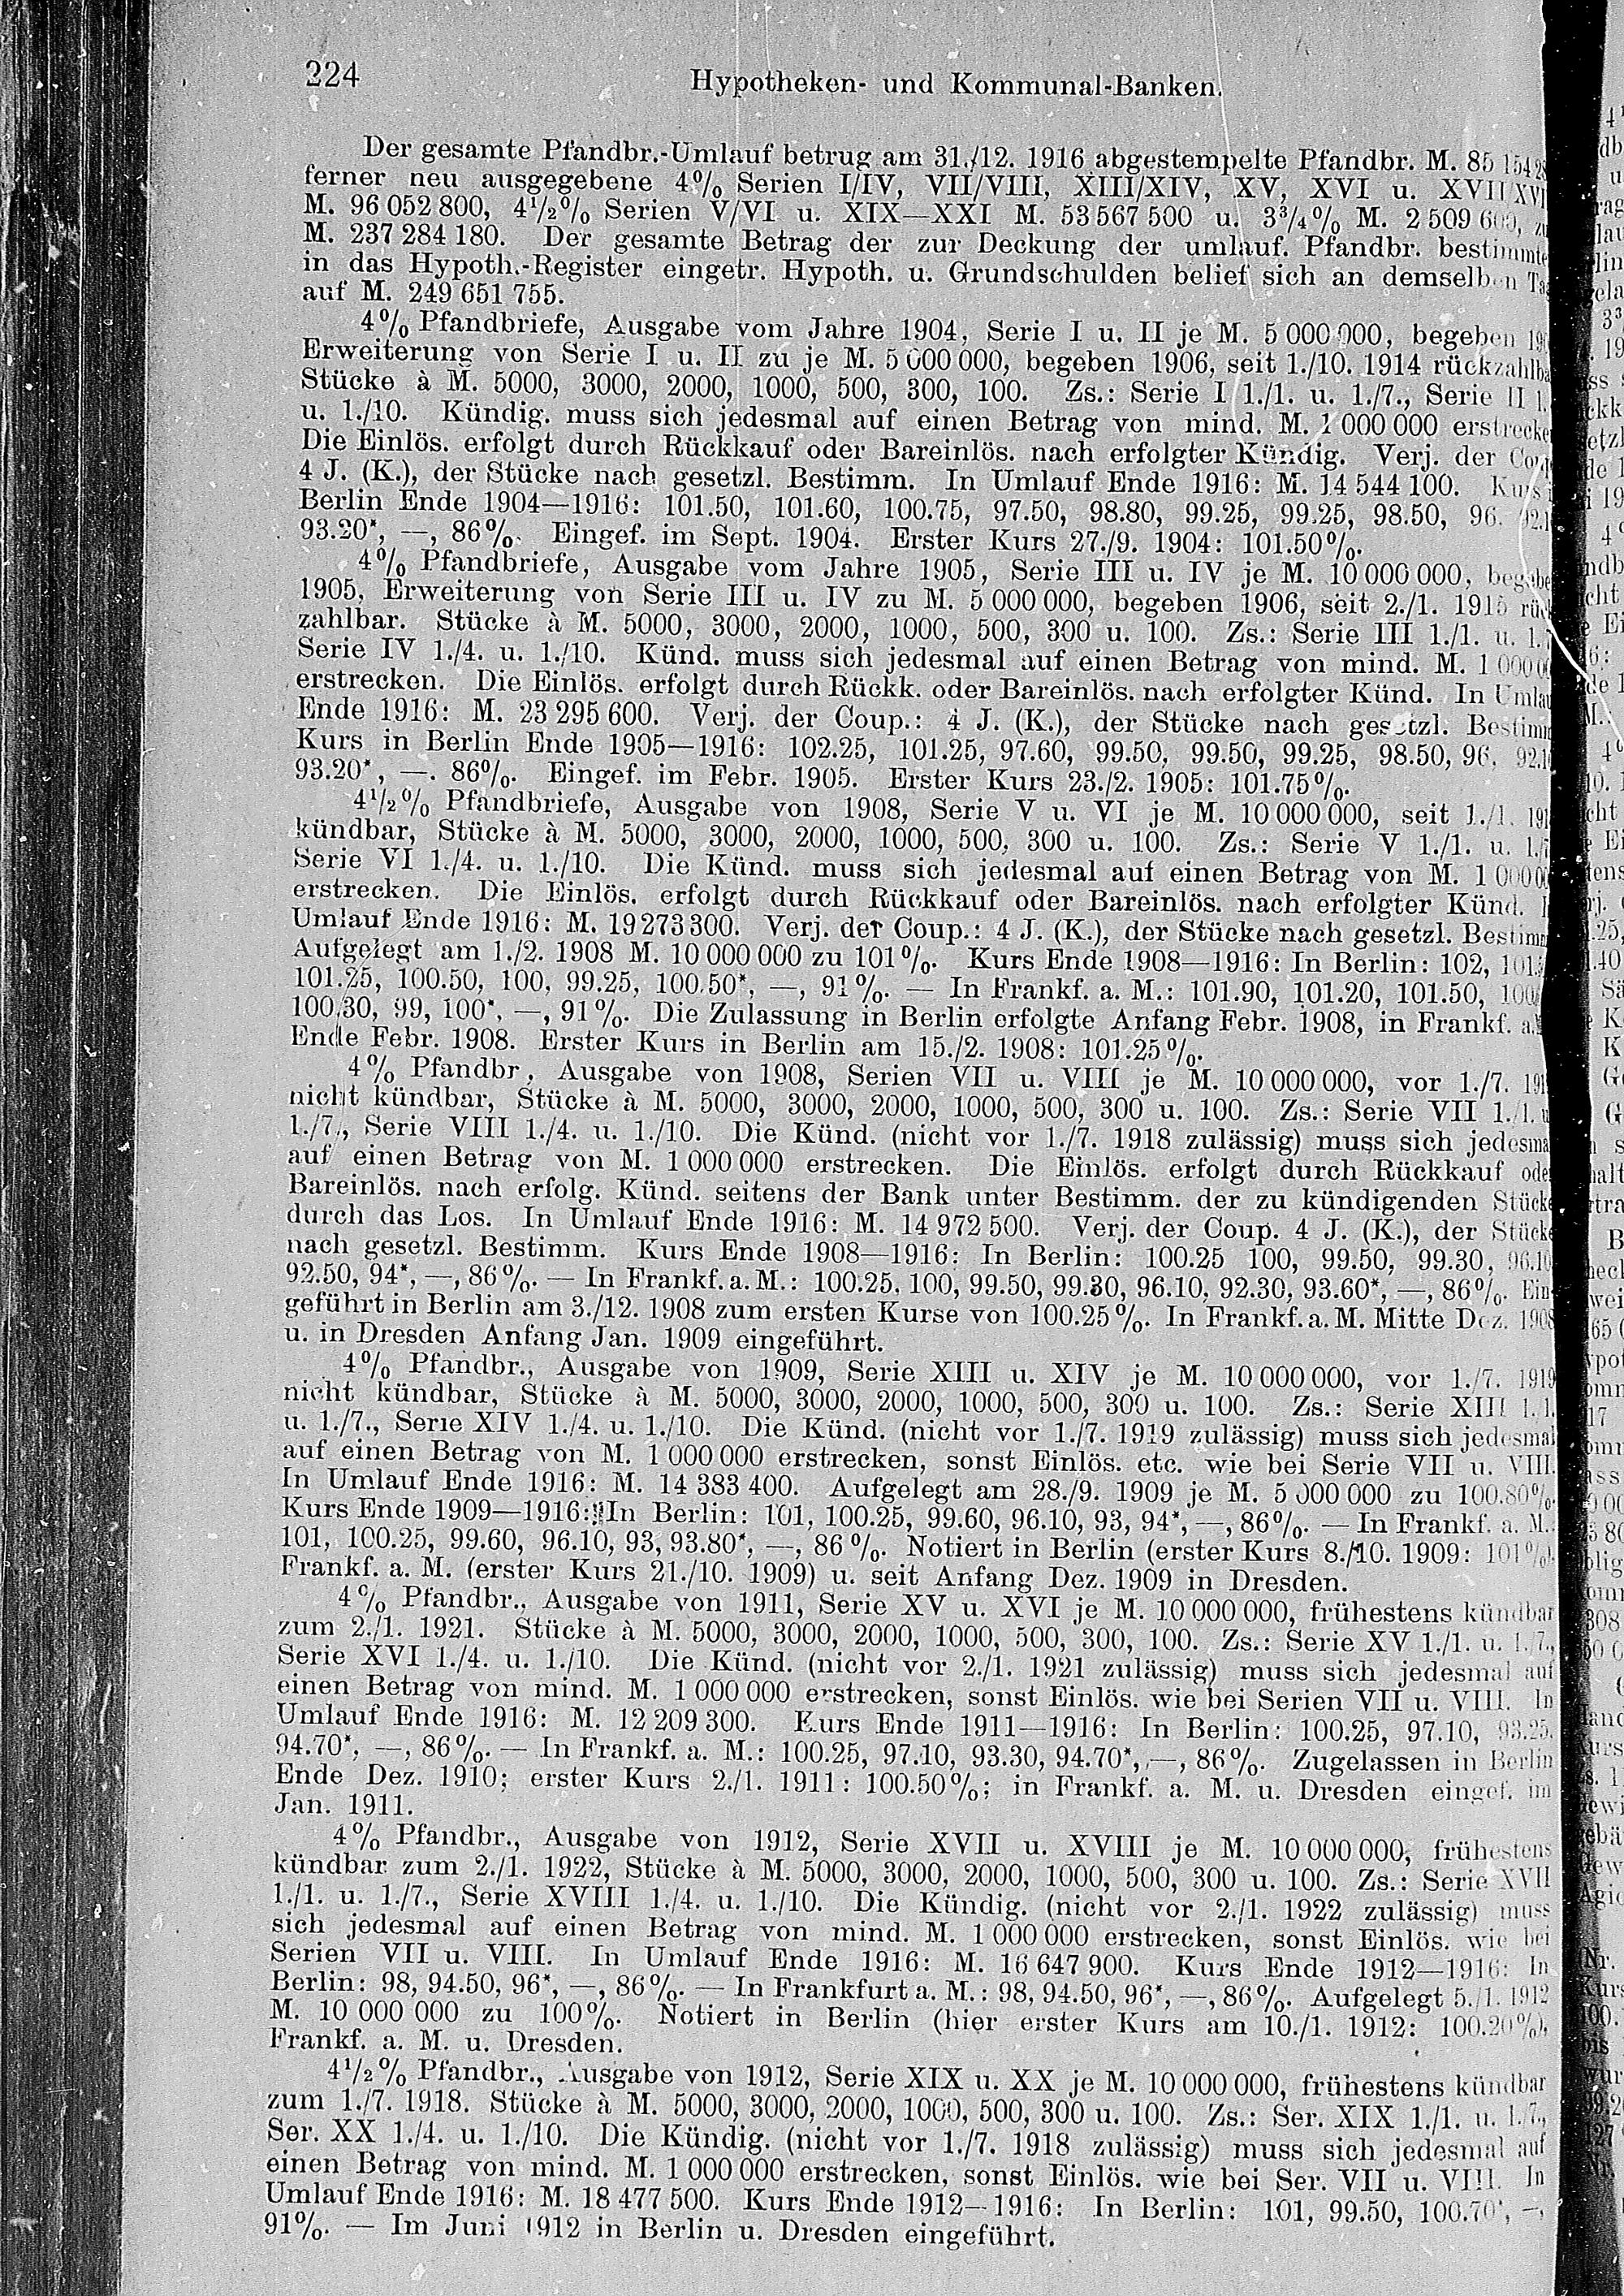 224 Hypotheken- und Kommunal-Banken.
Der gesamte Pfandbr.-Umlauf betrug am 31./12. 1916 abgestempelte Pfandbr. M. 85
ferner neu ausgegebene 4% Serien I/IV, VII/VIII, XIII/XIV, XV, XVI u.
M. 96 052 800, 4½% Serien V/VI u. XIX—XXI M. 53 567 500 u. 3¾% M. 2 509 600,
M. 237 284 180. Der gesamte Betrag der zur Deckung der umlauf. Pfandbr. bestimmte
in das Hypoth.-Register eingetr. Hypoth. u. Grundschulden belief sich an demselben
auf M. 249 651 755.
4% Pfandbriefe, Ausgabe vom Jahre 1904, Serie I u. II je M. 5 000 000, begeben
Erweiterung von Serie I u. II zu je M. 5 000 000, begeben 1906, seit 1./10. 1914 rückzahlba
Stücke à M. 5000, 3000, 2000, 1000, 500, 300, 100. Zs.: Serie I 1./1. u. 1./7., Serie II
u. 1./10. Kündig. muss sich jedesmal auf einen Betrag von mind. M. 1 000 000 erstrecke
Die Einlös. erfolgt durch Rückkauf oder Bareinlös. nach erfolgter Kündig. Verj. der
4 J. (K.), der Stücke nach gesetzl. Bestimm. In Umlauf Ende 1916: M. 14 544 100. Kurs
Berlin Ende 1904—1916: 101.50, 101.60, 100.75, 97.50, 98.80, 99.25, 99.25, 98.50, 96,
93.20*, —, 86%. Eingef. im Sept. 1904. Erster Kurs 27./9. 1904: 101.50%.
4% Pfandbriefe, Ausgabe vom Jahre 1905, Serie III u. IV je M. 10 000 000, begebe
1905, Erweiterung von Serie III u. IV zu M. 5 000 000, begeben 1906, seit 2./1. 1915 rüc
zahlbar. Stücke à M. 5000, 3000, 2000, 1000, 500, 300 u. 100. Zs.: Serie III 1./1. u.
Serie IV 1./4. u. 1./10. Künd. muss sich jedesmal auf einen Betrag von mind. M. 1 000
erstrecken. Die Einlös. erfolgt durch Rückk. oder Bareinlös. nach erfolgter Künd. In Umlau
Ende 1916: M. 23 295 600. Verj. der Coup.: 4 J. (K.), der Stücke nach gesetzl. Bestimm
Kurs in Berlin Ende 1905—1916: 102.25, 101.25, 97.60, 99.50, 99.50, 99.25, 98.50, 96,
93.20*, —. 86%. Eingef. im Febr. 1905. Erster Kurs 23./2. 1905: 101.75%.
4½% Pfandbriefe, Ausgabe von 1908, Serie V u. VI je M. 10 000 000, seit 1./1.
kündbar, Stücke à M. 5000, 3000, 2000, 1000, 500, 300 u. 100. Zs.: Serie V 1./1. u.
Serie VI 1./4. u. 1./10. Die Künd. muss sich jedesmal auf einen Betrag von M. 1 000
erstrecken. Die Einlös. erfolgt durch Rückkauf oder Bareinlös. nach erfolgter Künd.
Umlauf Ende 1916: M. 19 273 300. Verj. der Coup.: 4 J. (K.), der Stücke nach gesetzl. Bestimm
Aufgelegt am 1./2. 1908 M. 10 000 000 zu 101%. Kurs Ende 1908—1916: In Berlin: 102,
101.25, 100.50, 100, 99.25, 100.50*, —, 91%. — In Frankf. a. M.: 101.90, 101.20, 101.50,
100.30, 99, 100*, —, 91%. Die Zulassung in Berlin erfolgte Anfang Febr. 1908, in Frankf.
Ende Febr. 1908. Erster Kurs in Berlin am 15./2. 1908: 101.25%.
4% Pfandbr., Ausgabe von 1908, Serien VII u. VIII je M. 10 000 000, vor 1./7.
nicht kündbar, Stücke à M. 5000, 3000, 2000, 1000, 500, 300 u. 100. Zs.: Serie VII 1./1. u
1./7., Serie VIII 1./4. u. 1./10. Die Künd. (nicht vor 1./7. 1918 zulässig) muss sich jedesma
auf einen Betrag von M. 1 000 000 erstrecken. Die Einlös. erfolgt durch Rückkauf ode
Bareinlös. nach erfolg. Künd. seitens der Bank unter Bestimm. der zu kündigenden Stücke
durch das Los. In Umlauf Ende 1916: M. 14 972 500. Verj. der Coup. 4 J. (K.), der Stücke
nach gesetzl. Bestimm. Kurs Ende 1908—1916: In Berlin: 100.25 100, 99.50, 99.30, 96.10
92.50, 94*, —, 86%. — In Frankf. a. M.: 100.25, 100, 99.50, 99.30, 96.10, 92.30, 93.60*, —, 86%. Ein
geführt in Berlin am 3./12. 1908 zum ersten Kurse von 100.25%. In Frankf. a. M. Mitte Dez. 1908
u. in Dresden Anfang Jan. 1909 eingeführt.
4% Pfandbr., Ausgabe von 1909, Serie XIII u. XIV je M. 10 000 000, vor 1./7. 1919
nicht kündbar, Stücke à M. 5000, 3000, 2000, 1000, 500, 300 u. 100. Zs.: Serie XIII 1. 1.
u. 1./7., Serie XIV 1./4. u. 1./10. Die Künd. (nicht vor 1./7. 1919 zulässig) muss sich jedesmal
auf einen Betrag von M. 1 000 000 erstrecken, sonst Einlös. etc. wie bei Serie VII u. VIII.
In Umlauf Ende 1916: M. 14 383 400. Aufgelegt am 28./9. 1909 je M. 5 000 000 zu 100.80%.
Kurs Ende 1909—1916: In Berlin: 101, 100.25, 99.60, 96.10, 93, 94*, —, 86%. — In Frankf. a. M.:
101, 100.25, 99.60, 96.10, 93, 93.80*, —, 86%. Notiert in Berlin (erster Kurs 8./10. 1909: 101%),
Frankf. a. M. (erster Kurs 21./10. 1909) u. seit Anfang Dez. 1909 in Dresden.
4% Pfandbr., Ausgabe von 1911, Serie XV u. XVI je M. 10 000 000, frühestens kündbar
zum 2./1. 1921. Stücke à M. 5000, 3000, 2000, 1000, 500, 300, 100. Zs.: Serie XV 1./1. u. 1./7.,
Serie XVI 1./4. u. 1./10. Die Künd. (nicht vor 2./1. 1921 zulässig) muss sich jedesmal auf
einen Betrag von mind. M. 1 000 000 erstrecken, sonst Einlös. wie bei Serien VII u. VIII. In
Umlauf Ende 1916: M. 12 209 300. Kurs Ende 1911—1916: In Berlin: 100.25, 97.10, 93.25,
94.70*, —, 86%. — In Frankf. a. M.: 100.25, 97.10, 93.30, 94.70*, —, 86%. Zugelassen in Berlin
Ende Dez. 1910; erster Kurs 2./1. 1911: 100.50%; in Frankf. a. M. u. Dresden eingef. im
Jan. 1911.
4% Pfandbr., Ausgabe von 1912, Serie XVII u. XVIII je M. 10 000 000, frühestens
kündbar zum 2./1. 1922, Stücke à M. 5000, 3000, 2000, 1000, 500, 300 u. 100. Zs.: Serie XVII
1./1. u. 1./7., Serie XVIII 1./4. u. 1./10. Die Kündig. (nicht vor 2./1. 1922 zulässig) muss
sich jedesmal auf einen Betrag von mind. M. 1 000 000 erstrecken, sonst Einlös. wie bei
Serien VII u. VIII. In Umlauf Ende 1916: M. 16 647 900. Kurs Ende 1912—1916: In
Berlin: 98, 94.50, 96*, —, 86%. — In Frankfurt a. M.: 98, 94.50, 96*, —, 86%. Aufgelegt 5./1. 1912
M. 10 000 000 zu 100%. Notiert in Berlin (hier erster Kurs am 10./1. 1912: 100.20%),
Frankf. a. M. u. Dresden.
4½% Pfandbr., Ausgabe von 1912, Serie XIX u. XX je M. 10 000 000, frühestens kündbar
zum 1./7. 1918. Stücke à M. 5000, 3000, 2000, 1000, 500, 300 u. 100. Zs.: Ser. XIX 1./1. u. 1./7.,
Ser. XX 1./4. u. 1./10. Die Kündig. (nicht vor 1./7. 1918 zulässig) muss sich jedesmal auf
einen Betrag von mind. M. 1 000 000 erstrecken, sonst Einlös. wie bei Ser. VII u. VIII. In
Umlauf Ende 1916: M. 18 477 500. Kurs Ende 1912—1916: In Berlin: 101, 99.50, 100.70*, —,
91%. — Im Juni 1912 in Berlin u. Dresden eingeführt.